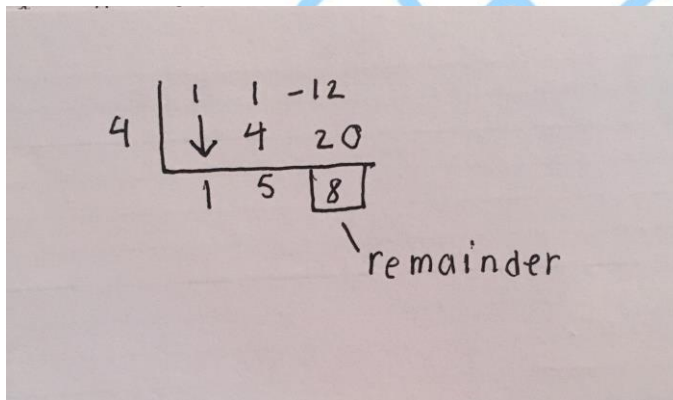 1 1 -12
4 ↓ 4 20
1 5 8
remainder